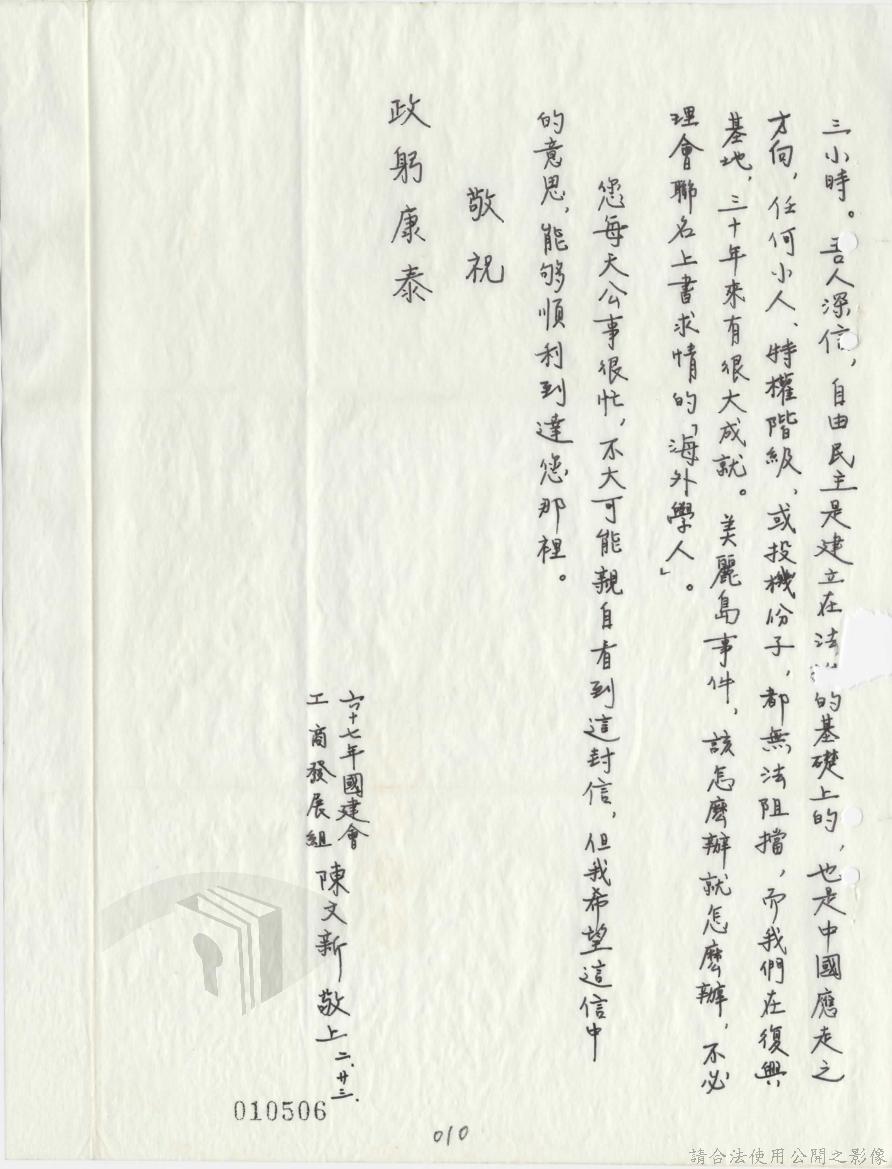 三小時。吾人深信，自由民主是建立在法的基礎上的，也是中國應走之
方向，任何小人、特權階級、或投機份子，都無法阻擋，而我們在復興
基地，三十年來有很大成就。美麗島事件，該怎麼辦就怎麼辦，不必
理會聯名上書求情的「海外學人」。
您每天公事很忙，不大可能親自看到這封信，但我希望這信中
的意思，能够順利到達您那裡。
敬祝
政躬康泰
六十七年國建會
工商發展組
陳文新 敬上 二、廿三、
010506
010
請合法使用公開之影像